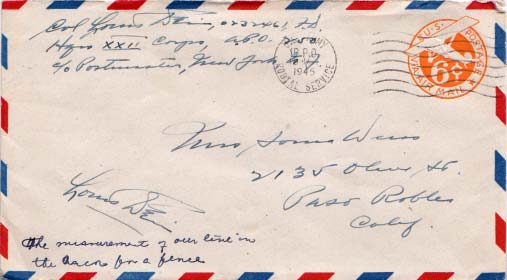 Col Louis Stein, 0232461, FD
Hqrs XXII Corps, A.P.O. 250
c/o Postmaster, New York N.Y.
U.S. ARMY
A.P.O.
1945
POSTAL SERVICE
U.S. POSTAGE
6¢
VIA AIR MAIL
Mrs Louis
2135 Olive St.
Paso Robles
Calif.
Louis
The measurement of our line on
the for a fence